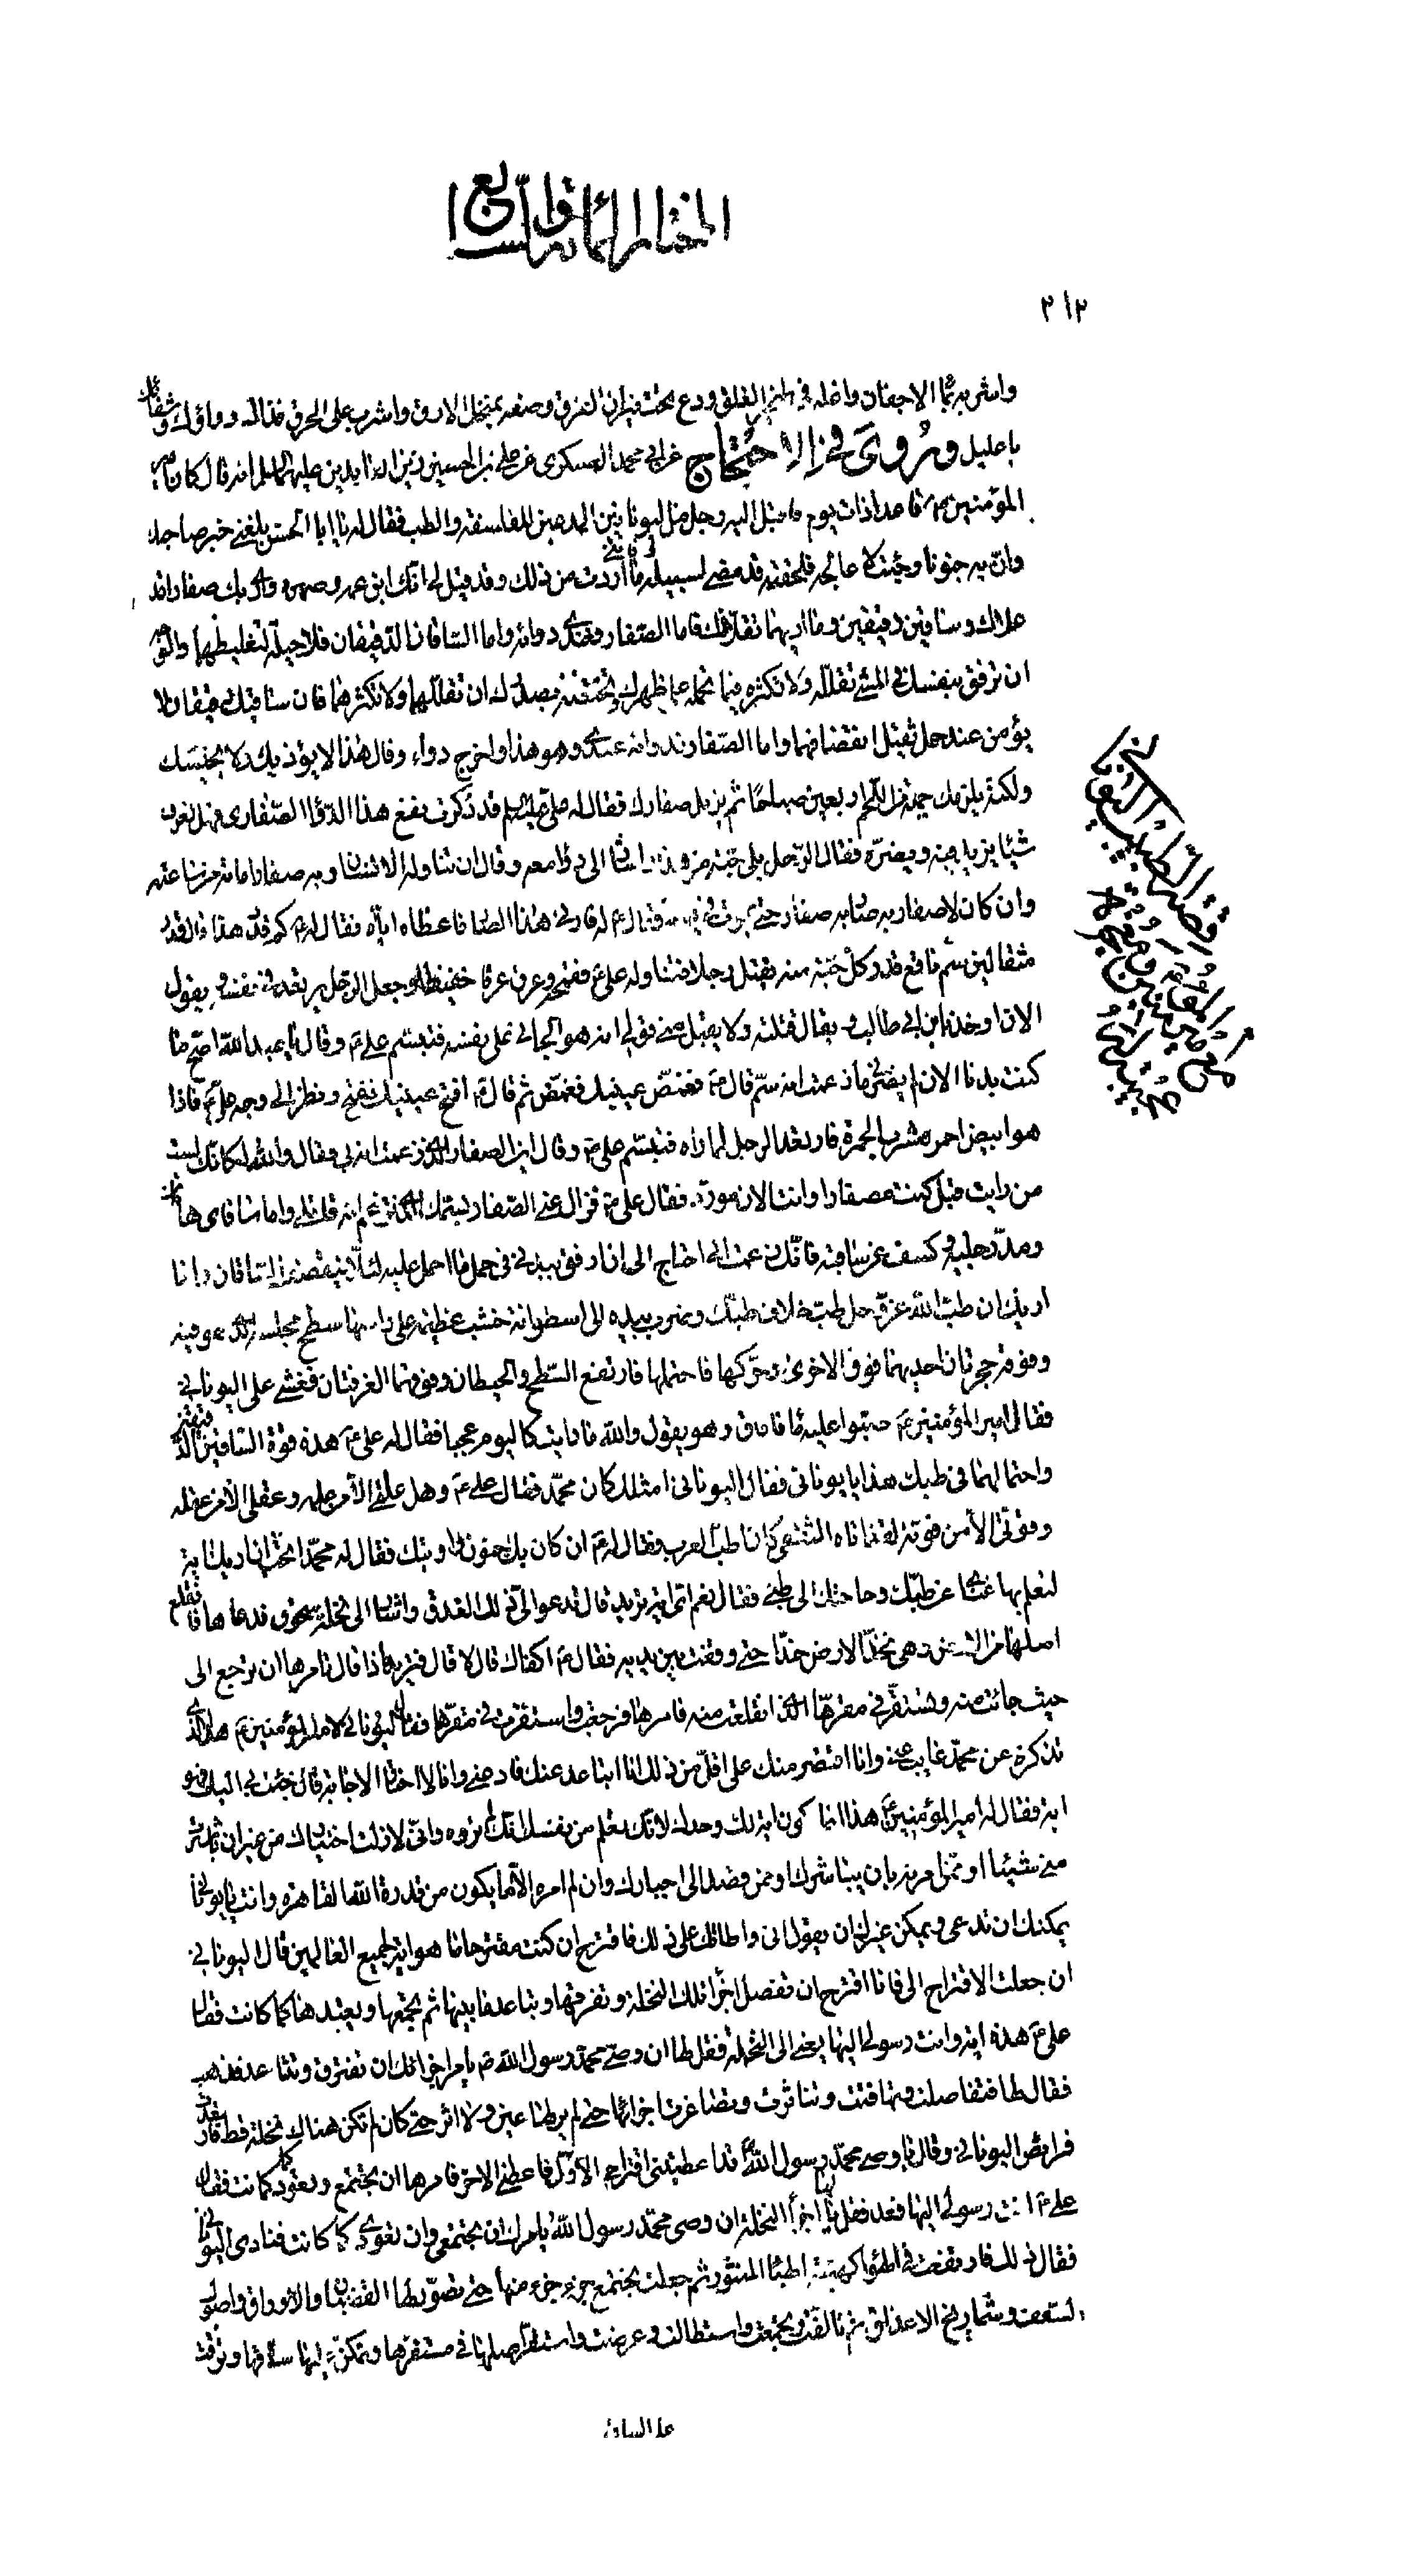 المختار المائة والسابع
٢١٢
وامزجه بماء الاجفان واغله في طنجير القلق ودع تحته نيران الفرق وصفه بمنخل الارق واشربه على الحرق فذاك دواؤك وشفاؤك
يا عليل وروى في الاحتجاج عن ابي محمد العسكرى عن علي بن الحسين زين العابدين عليهما السلام انه قال كان امير
المؤمنين ع قاعدا ذات يوم فاقبل اليه رجل من اليونانيين المدعين للفلسفة والطب فقال له يا ابا الحسن بلغني خبر صاحبك
وان به جنونا وجئت لاعالجه فلحقته قد مضى لسبيله وفاتني ما اردت من ذلك وقد قيل لي انك ابن عمه وصهره وارى بك صفارا قد
علاك وساقين دقيقين وما اراهما تقلانك فاما الصفار فعندي دوائه واما الساقان الدقيقان فلا حيلة لتغليظهما والوجه
ان ترفق بنفسك في المشي تقلله ولا تكثره وفيما تحمله على ظهرك وتحتضنه بصدرك ان تقللهما ولا تكثرهما فان ساقيك دقيقان لا
يؤمن عند حمل ثقيل انقصافهما واما الصفار فدوائه عندي وهو هذا واخرج دواء وقال هذا لا يؤذيك ولا يخيسك
ولكنه يلزمك حمية من اللحم اربعين صباحا ثم يزيل صفارك فقال له علي عليه السلام قد ذكرت نفع هذا الدواء لصفاري فهل تعرف
شيئا يزيد فيه ويضره فقال الرجل بلى حبة من هذا واشار الى دواء معه وقال ان تناوله الانسان وبه صفار اماته من ساعته
وان كان لا صفار به صار به صفار حتى يموت في يومه فقال ع له فارني هذا الضار فاعطاه اياه فقال له ع كم قدر هذا قال قدر
مثقالين سم ناقع قدر كل حبة منه يقتل رجلا فتناوله علي ع فقمحه وعرق عرقا خفيفا وجعل الرجل يرتعد في نفسه ويقول
الان اوخذ بابن ابي طالب ويقال قتلته ولا يقبل مني قولي انه هو الجاني على نفسه فتبسم علي ع وقال يا عبد الله اصح ما
كنت بدنا الان لم يضرني ما زعمت انه سم قال ع فغمض عينيك فغمض ثم قال ع افتح عينيك ففتح ونظر الى وجه علي ع فاذا
هو ابيض احمر مشرب الحمرة فارتعد الرجل لما راه فتبسم علي ع وقال اين الصفار الذي زعمت انه بي فقال والله لكانك لست
من رايت قبل كنت مصفارا وانت الان مورد فقال علي ع فزال عني الصفار بسمك الذي تزعم انه قاتلي واما ساقاي هاتان
ومد رجليه وكشف عن ساقيه فانك زعمت اني احتاج الى ان ارفق ببدني في حمل ما احمل عليه لئلا ينقصف الساقان وانا
اريك ان طب الله عز وجل طب خلاف طبك وضرب بيده الى اسطوانة خشب عظيمة على راسها سطح مجلسه الذي هو فيه
وفوقه حجرتان احديهما فوق الاخرى وحركها فاحتملها فارتفع السطح والحيطان وفوقهما الغرفتان فغشي على اليوناني
فقال امير المؤمنين ع صبوا عليه ماء فافاق وهو يقول والله ما رايت كاليوم عجبا فقال له علي ع هذه قوة الساقين الدقيقتين
واحتمالهما في طبك هذا يا يوناني فقال اليوناني امثلك كان محمد فقال علي ع وهل علمي الا من علمه وعقلي الا من عقله
وقوتي الا من قوته لقد اتاه الثقفي كان اطب العرب فقال له ع ان كان بك جنون داويتك فقال له محمد اتحب ان اريك اية
تعلم بها غناي عن طبك وحاجتك الى طبي فقال نعم اي اية تريد قال تدعو الي ذلك العذق واشار الى نخلة سحوق فدعاها فانقلع
اصلها من الارض وهي تخد الارض خدا حتى وقفت بين يديه فقال ع اكفاك قال لا قال فتريد ماذا قال تامرها ان ترجع الى
حيث جائت منه وتستقر في مقرها الذي انقلعت منه فامرها فرجعت واستقرت في مقرها فقال اليوناني لامير المؤمنين ع هذا الذي
تذكره عن محمد غايب عني وانا اقتصر منك على اقل من ذلك انا اتباعد عنك فادعني وانا لا اختار الاجابة فان جئت بي اليك فهو
اية فقال له امير المؤمنين ع هذا انما يكون اية لك وحدك لانك تعلم من نفسك انك لم ترده واني ازلت اختيارك من غير ان باشرت
مني شيئا او ممن امرته بان يباشرك او ممن قصد الى اجبارك وان لم امره الا ما يكون من قدرة الله القاهرة وانت يا يوناني
يمكنك ان تدعي ويمكن غيرك ان يقول اني واطاتك على ذلك فاقترح ان كنت مقترحا ما هو اية لجميع العالمين قال اليوناني
ان جعلت الاقتراح الي فانا اقترح ان تفصل اجزاء تلك النخلة وتفرقها وتباعد ما بينها ثم تجمعها وتعيدها كما كانت فقال
علي ع هذه اية وانت رسولي اليها يعني الى النخلة فقل لها ان وصي محمد رسول الله ص يامر اجزائك ان تتفرق وتتباعد فذهب
فقال لها فتفاصلت وتهافتت وتناثرت وتصاغرت اجزائها حتى لم ير لها عين ولا اثر حتى كان لم تكن هناك نخلة قط فارتعدت
فرايص اليوناني وقال يا وصي محمد رسول الله قد اعطيتني اقتراحي الاول فاعطني الاخر فامرها ان تجتمع وتعود كما كانت فقال
علي ع انت رسولي اليها فعد فقل لها يا اجزاء النخلة ان وصي محمد رسول الله يامرك ان تجتمعي وان تعودي كما كانت فنادى اليوناني
فقال ذلك فارتفعت في الهواء كهيئة الهباء المنثور ثم جعلت تجتمع جزء جزء منها حتى تصور لها القضبان والاوراق واصول
السعف وشماريخ الاعذاق ثم تالفت وتجمعت واستطالت وعرضت واستقر اصلها في مستقرها وتمكن عليها ساقها وتركب
على الساق